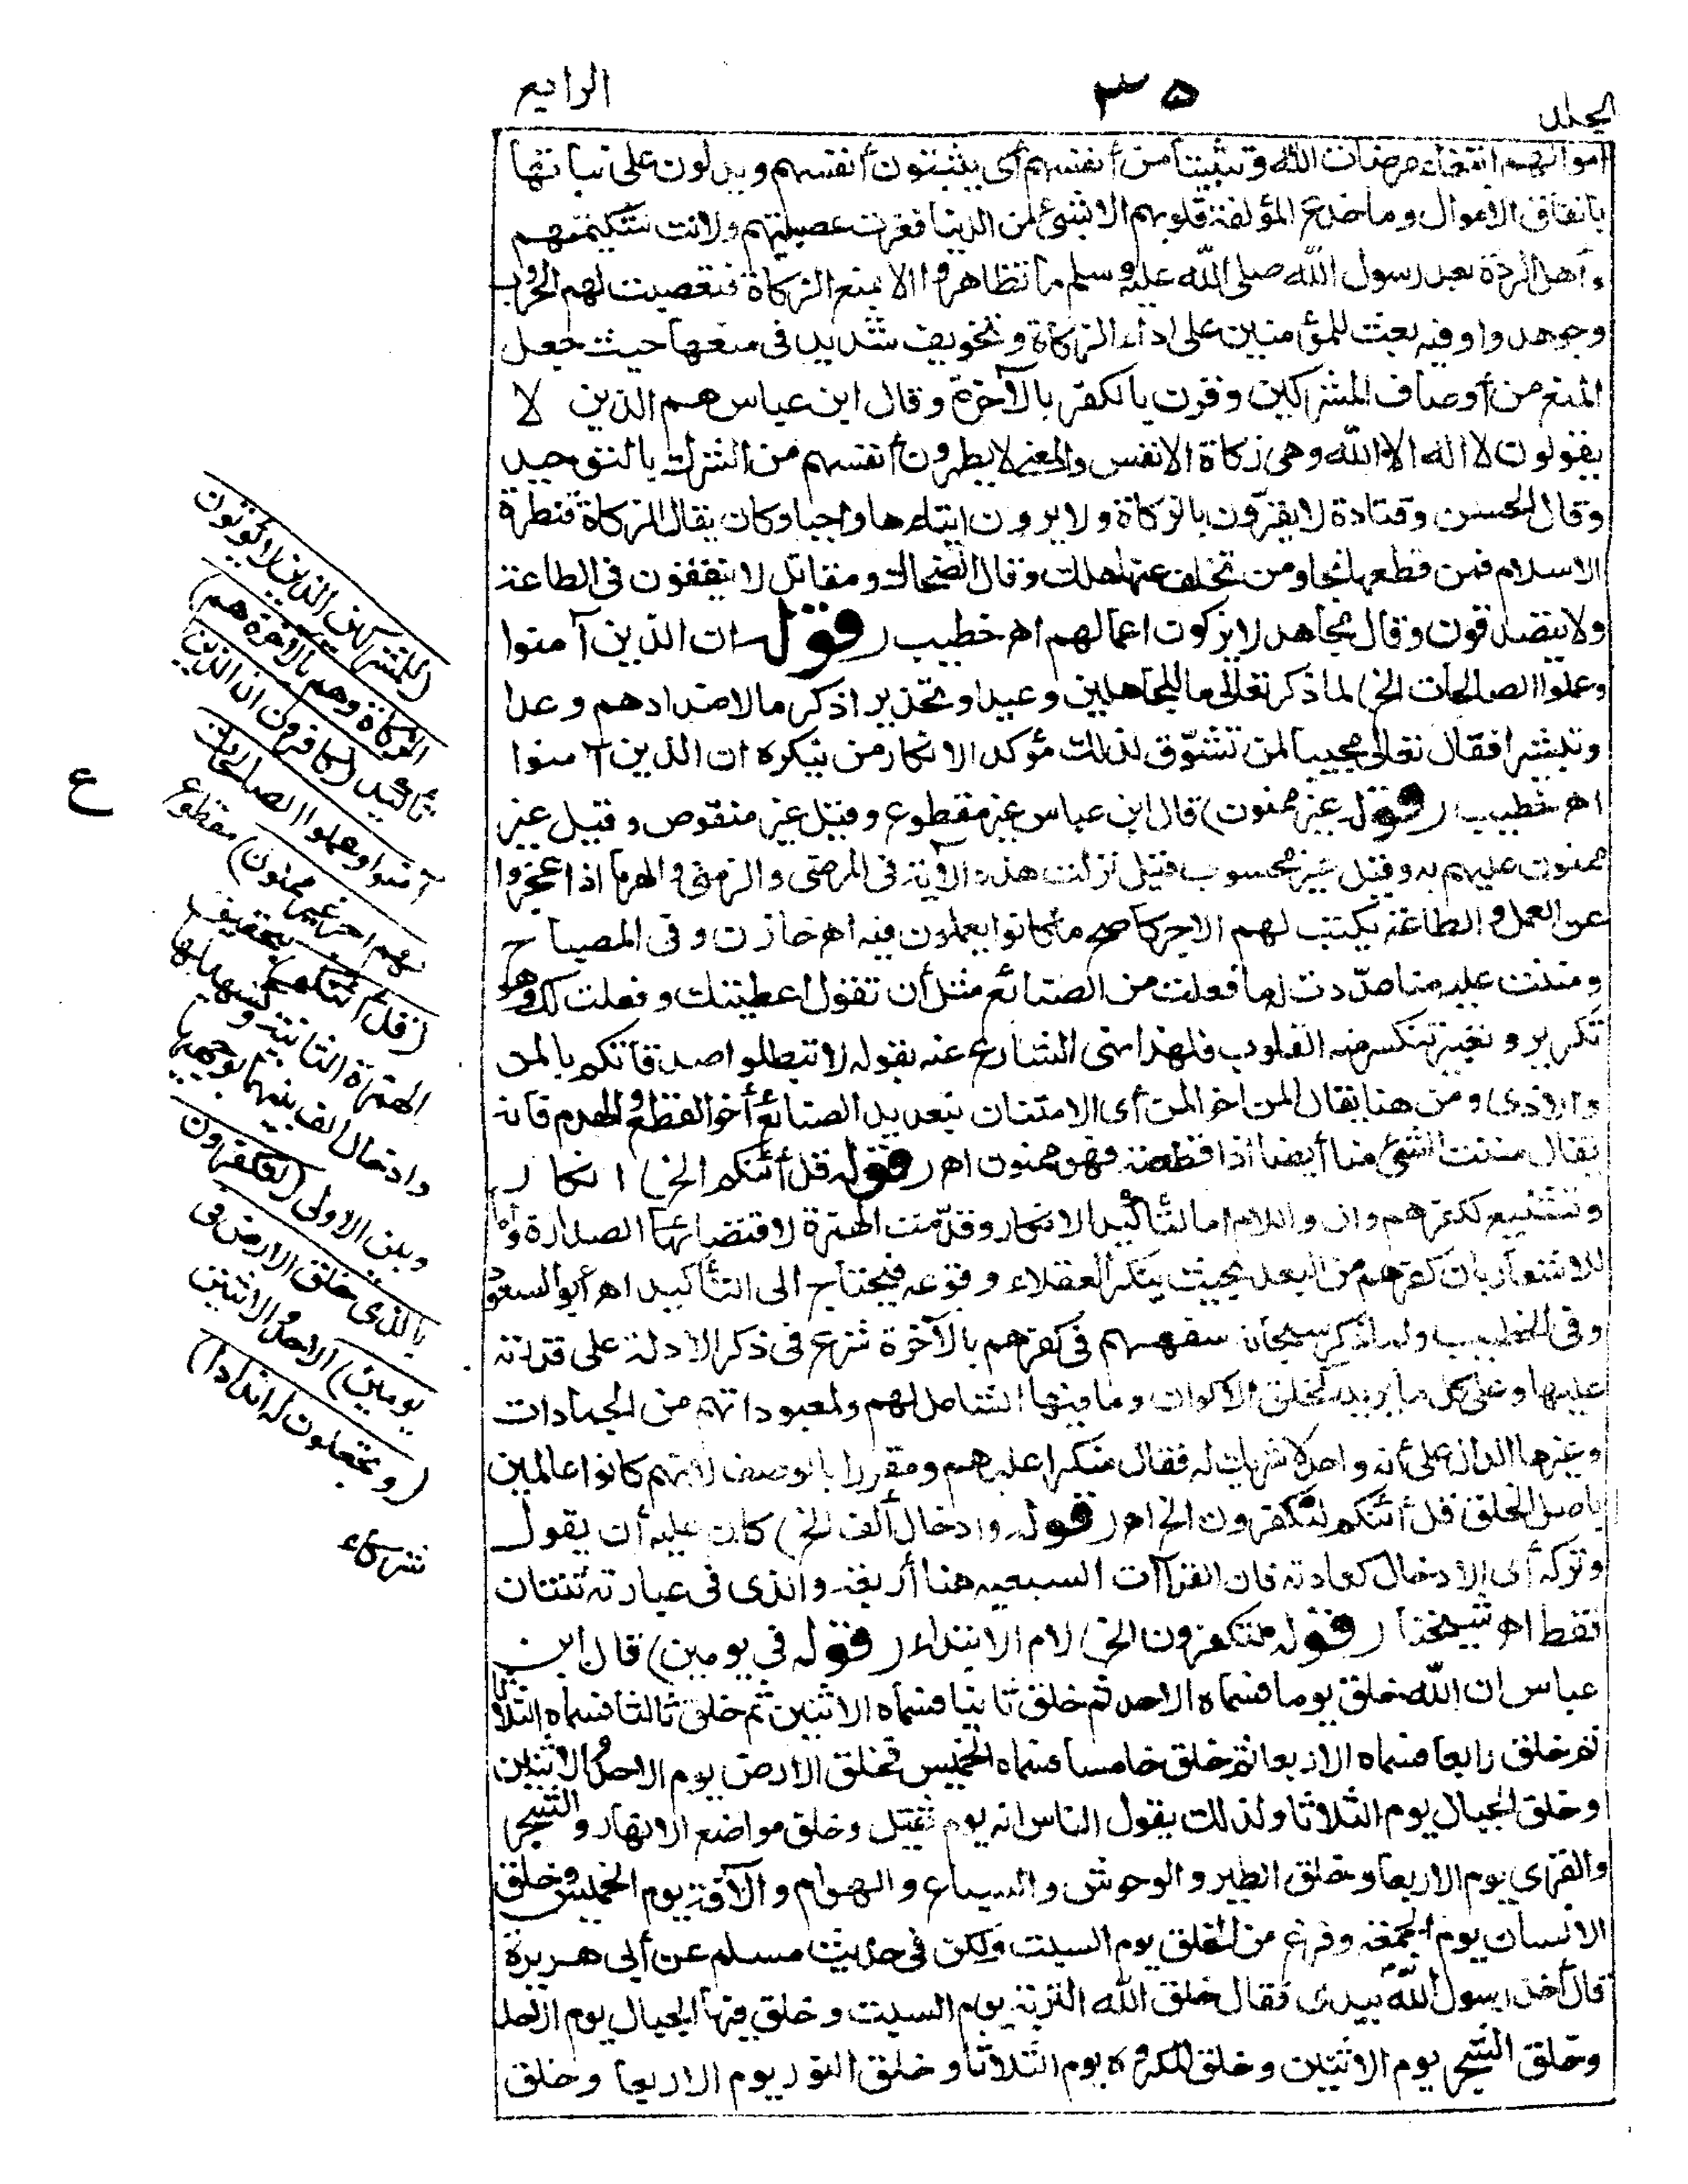 المجلد
٣٥
الرابع
أموالهم ابتغاء مرضات الله وتثبيتا من أنفسهم أى يثبتون أنفسهم ويدلون على ثباتها
بانفاق الاموال وما خدع المؤلفة قلوبهم الا بشئ من الدنيا فقرت عصبيتهم ولانت شكيمتهم
وأهل الردة بعد رسول الله صلى الله عليه وسلم ما تظاهروا الا بمنع الزكاة فنصبت لهم الحروب
وجوهدوا وفيه بعث للمؤمنين على اداء الزكاة وتخويف شديد فى منعها حيث جعل
المنع من أوصاف المشركين وقرن بالكفر بالآخرة وقال ابن عباس هم الذين لا
يقولون لا اله الا الله وهى زكاة الانفس والمعنى لا يطهرون أنفسهم من الشرك بالتوحيد
وقال الحسن وقتادة لا يقرّون بالزكاة ولا يرون ايتاءها واجبا وكان يقال الزكاة قنطرة
الاسلام فمن قطعها نجا ومن تخلف عنها هلك وقال الضحاك ومقاتل لا ينفقون فى الطاعة
ولا يتصدقون وقال مجاهد لا يزكون اعمالهم اه خطيب (قوله ان الذين آمنوا
وعملوا الصالحات الخ) لما ذكر تعالى ما للجاهلين وعيدا وتحذيرا ذكر ما لاضدادهم وعدا
وتبشيرا فقال تعالى مجيبا لمن تشوّق لذلك مؤكد الانكار من ينكره ان الذين آمنوا
اه خطيب (قوله غير ممنون) قال ابن عباس غير مقطوع وقيل غير منقوص وقيل غير
ممنون عليهم به وقيل غير محسوب قيل نزلت هذه الآية فى المرضى والزمنى والهرمى اذا عجزوا
عن العمل والطاعة يكتب لهم الاجر كأصح ما كانوا يعملون فيه اه خازن وفى المصباح
ومننت عليه منا عدّدت له ما فعلت من الصنائع مثل أن تقول أعطيتك وفعلت لك وهو
تكرير وتغيير تنكسر منه القلوب فلهذا نهى الشارع عنه بقوله لا تبطلوا صدقاتكم بالمن
والاذى ومن هنا يقال المن أخو المن أى الامتنان بتعديد الصنائع أخو القطع والهدم فانه
يقال مننت الشئ منا أيضا اذا قطعته فهو ممنون اه (قوله قل أئنكم الخ) انكار
وتشنيع لكفرهم وان واللام اما لتأكيد الانكار وقدّمت الهمزة لاقتضائها الصدارة وإما
للاشعار بان كفرهم من البعد بحيث ينكر العقلاء وقوعه فيحتاج الى التأكيد اه أبو السعود
وفى الخطيب ولما ذكر سبحانه سفههم فى كفرهم بالآخرة شرع فى ذكر الادلة على قدرته
عليها وعلى كل ما يريد كخلق الاكوان وما فيها الشامل لهم ولمعبوداتهم من الجمادات
وغيرها الدال على أنه واحد لا شريك له فقال منكرا عليهم ومقررا بالوصف لانهم كانوا عالمين
باصل الخلق قل أئنكم لتكفرون الخ اه (قوله وادخال ألف الخ) كان عليه أن يقول
وتركه أى الادخال كعادته فان القراآت السبعيه هنا أربعة والذى فى عبارته ثنتان
فقط اه شيخنا (قوله لتكفرون الخ) لام الابتداء (قوله فى يومين) قال ابن
عباس ان الله خلق يوما فسماه الاحد ثم خلق ثانيا فسماه الاثنين ثم خلق ثالثا فسماه الثلاثا
ثم خلق رابعا فسماه الاربعا ثم خلق خامسا فسماه الخميس فخلق الارض يوم الاحد والاثنين
وخلق الجبال يوم الثلاثا ولذلك يقول الناس انه يوم ثقيل وخلق مواضع الانهار والشجر
والقرى يوم الاربعا وخلق الطير والوحوش والسباع والهوام والآفة يوم الخميس وخلق
الانسان يوم الجمعة وفرغ من الخلق يوم السبت ولكن فى حديث مسلم عن أبى هريرة
قال أخذ رسول الله بيدى فقال خلق الله التربة يوم السبت وخلق فيها الجبال يوم الاحد
وخلق الشجر يوم الاثنين وخلق المكروه يوم الثلاثا وخلق النور يوم الاربعا وخلق
(للمشركين الذين لا يؤتون
الزكاة وهم بالآخرة هم)
تأكيد (كافرون ان الذين
آمنوا وعملوا الصالحات
لهم اجر غير ممنون) مقطوع
(قل أئنكم) بتحقيق
الهمزة الثانية وتسهيلها
وادخال الف بينها بوجهيها
وبين الاولى (لتكفرون
بالذى خلق الارض فى
يومين) الاحد والاثنين
(وتجعلون له اندادا)
شركاء
ع